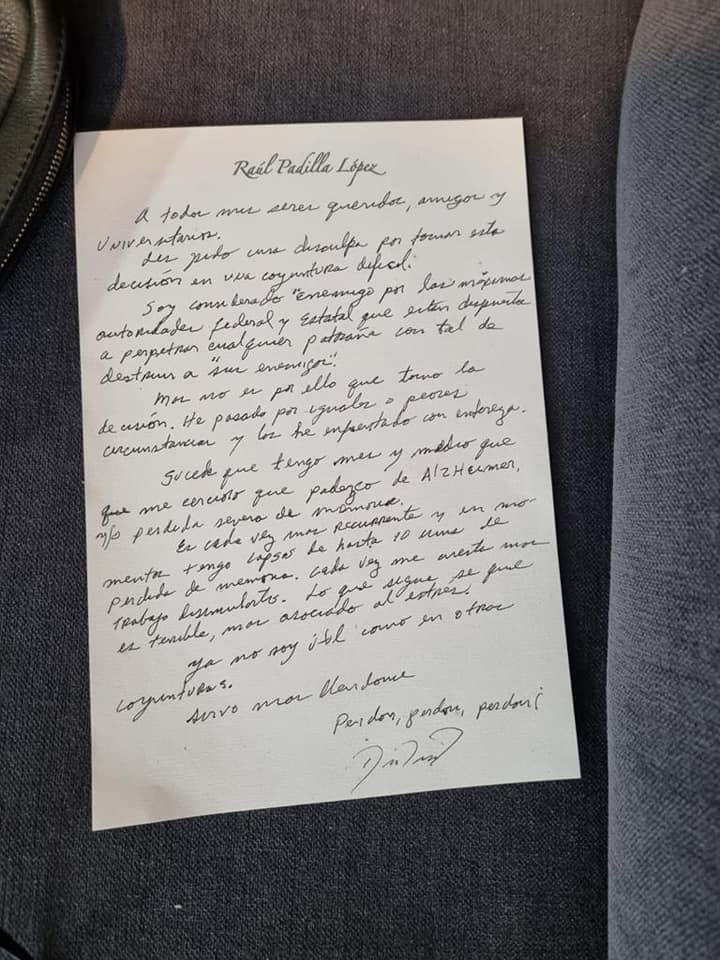 Raúl Padilla López
A todos mis seres queridos, amigos y
Universitarios.
Les pido una disculpa por tomar esta
decisión en una coyuntura dificil.
Soy considerado "Enemigo por las máximas
autoridades federal y Estatal que están dispuestas
a perpetrar cualquier patraña con tal de
destruir a "sus enemigos".
Mas no es por ello que tomo la
decisión. He pasado por iguales o peores
circunstancias y las he enfrentado con entereza.
Sucede que tengo mes y medio que
que me cercioro que padezco de Alzheimer,
y/o perdida severa de memoria.
Es cada vez mas recurrente y en mo-
mentos tengo lapsos de hasta 10 mins de
perdida de memoria. Cada vez me cuesta mas
trabajo disimularlo. Lo que sigue se que
es terrible, mas asociado al estres.
Ya no soy útil como en otras
coyunturas.
Sirvo mas
Perdon, perdon, perdon!